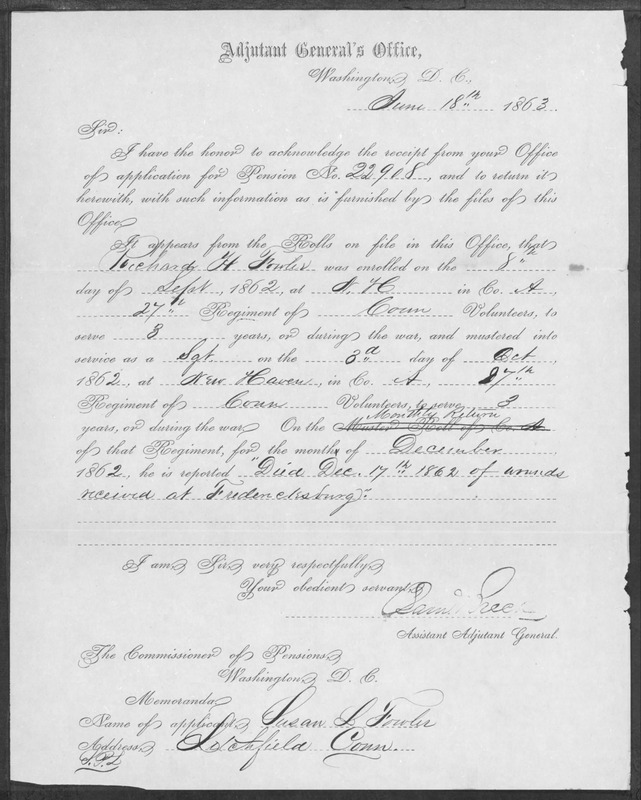 Adjutant General's Office,
Washington, D. C.,
June 18th 1863.
Sir:
I have the honor to acknowledge the receipt from your Office
of application for Pension No. 22908, and to return it
herewith, with such information as is furnished by the files of this
Office.
It appears from the Rolls on file in this Office, that
Richard H Fowler was enrolled on the 8th
day of Sept, 1862, at N. H in Co. A,
27th Regiment of Conn Volunteers, to
serve 3 years, or during the war, and mustered into
service as a Sgt on the 3d day of Oct,
1862, at New Haven, in Co. A, 27th
Regiment of Conn Volunteers, to serve 3
Monthly Return
years, or during the war. On the Muster Roll of Co. A
of that Regiment, for the months of December
1862, he is reported "Died Dec. 17th 1862 of wounds
received at Fredericksburg".
I am, Sir, very respectfully,
Your obedient servant,
Assistant Adjutant General.
The Commissioner of Pensions,
Washington, D. C.
Memoranda,
Name of applicant, Susan L Fowler
Address, Litchfield Conn.